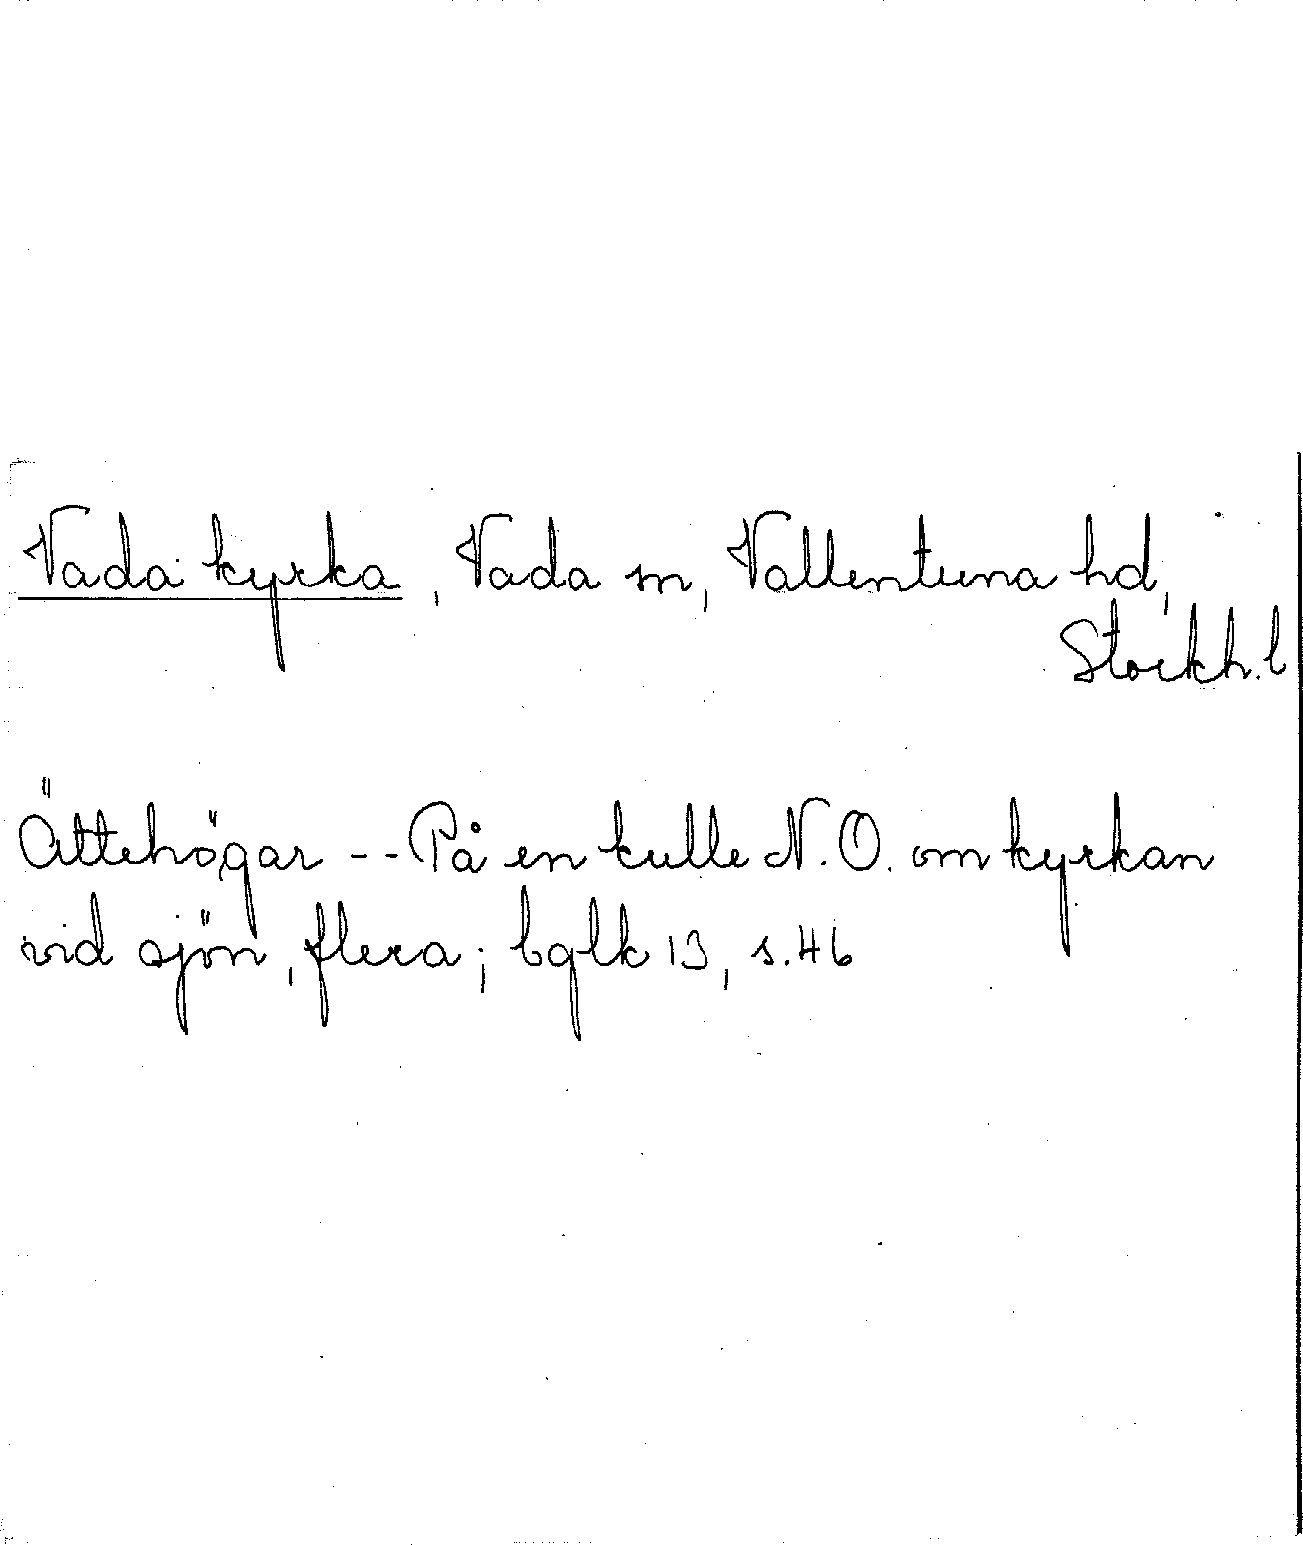 Vada kyrka, Vada sn, Vallentuna hd,
Stockh. l
Ättehögar -- På en kulle N.O. om kyrkan
vid sjön, flera; bglk 13, s. 46